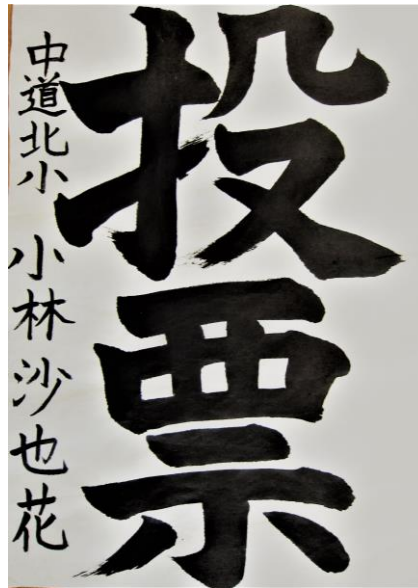 投票
中道北小 小林沙也花